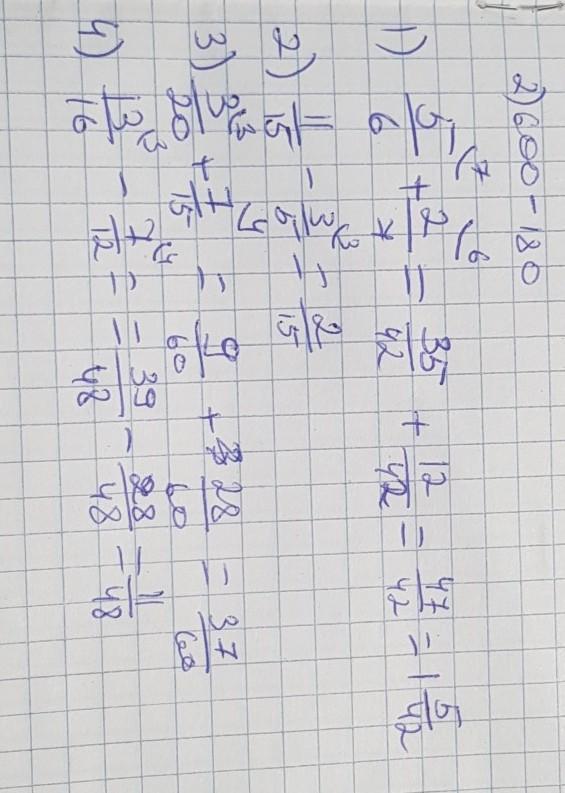 2) 600 - 180
1) 5/6 ⁷ + 2/7 ⁶ = 35/42 + 12/42 = 47/42 = 1 5/42
2) 11/15 - 3/5 ³ = 2/15
3) 3/20 ³ + 7/15 ⁴ = 9/60 + 28/60 = 37/60
4) 13/16 ³ - 7/12 ⁴ = = 39/48 - 28/48 = 11/48